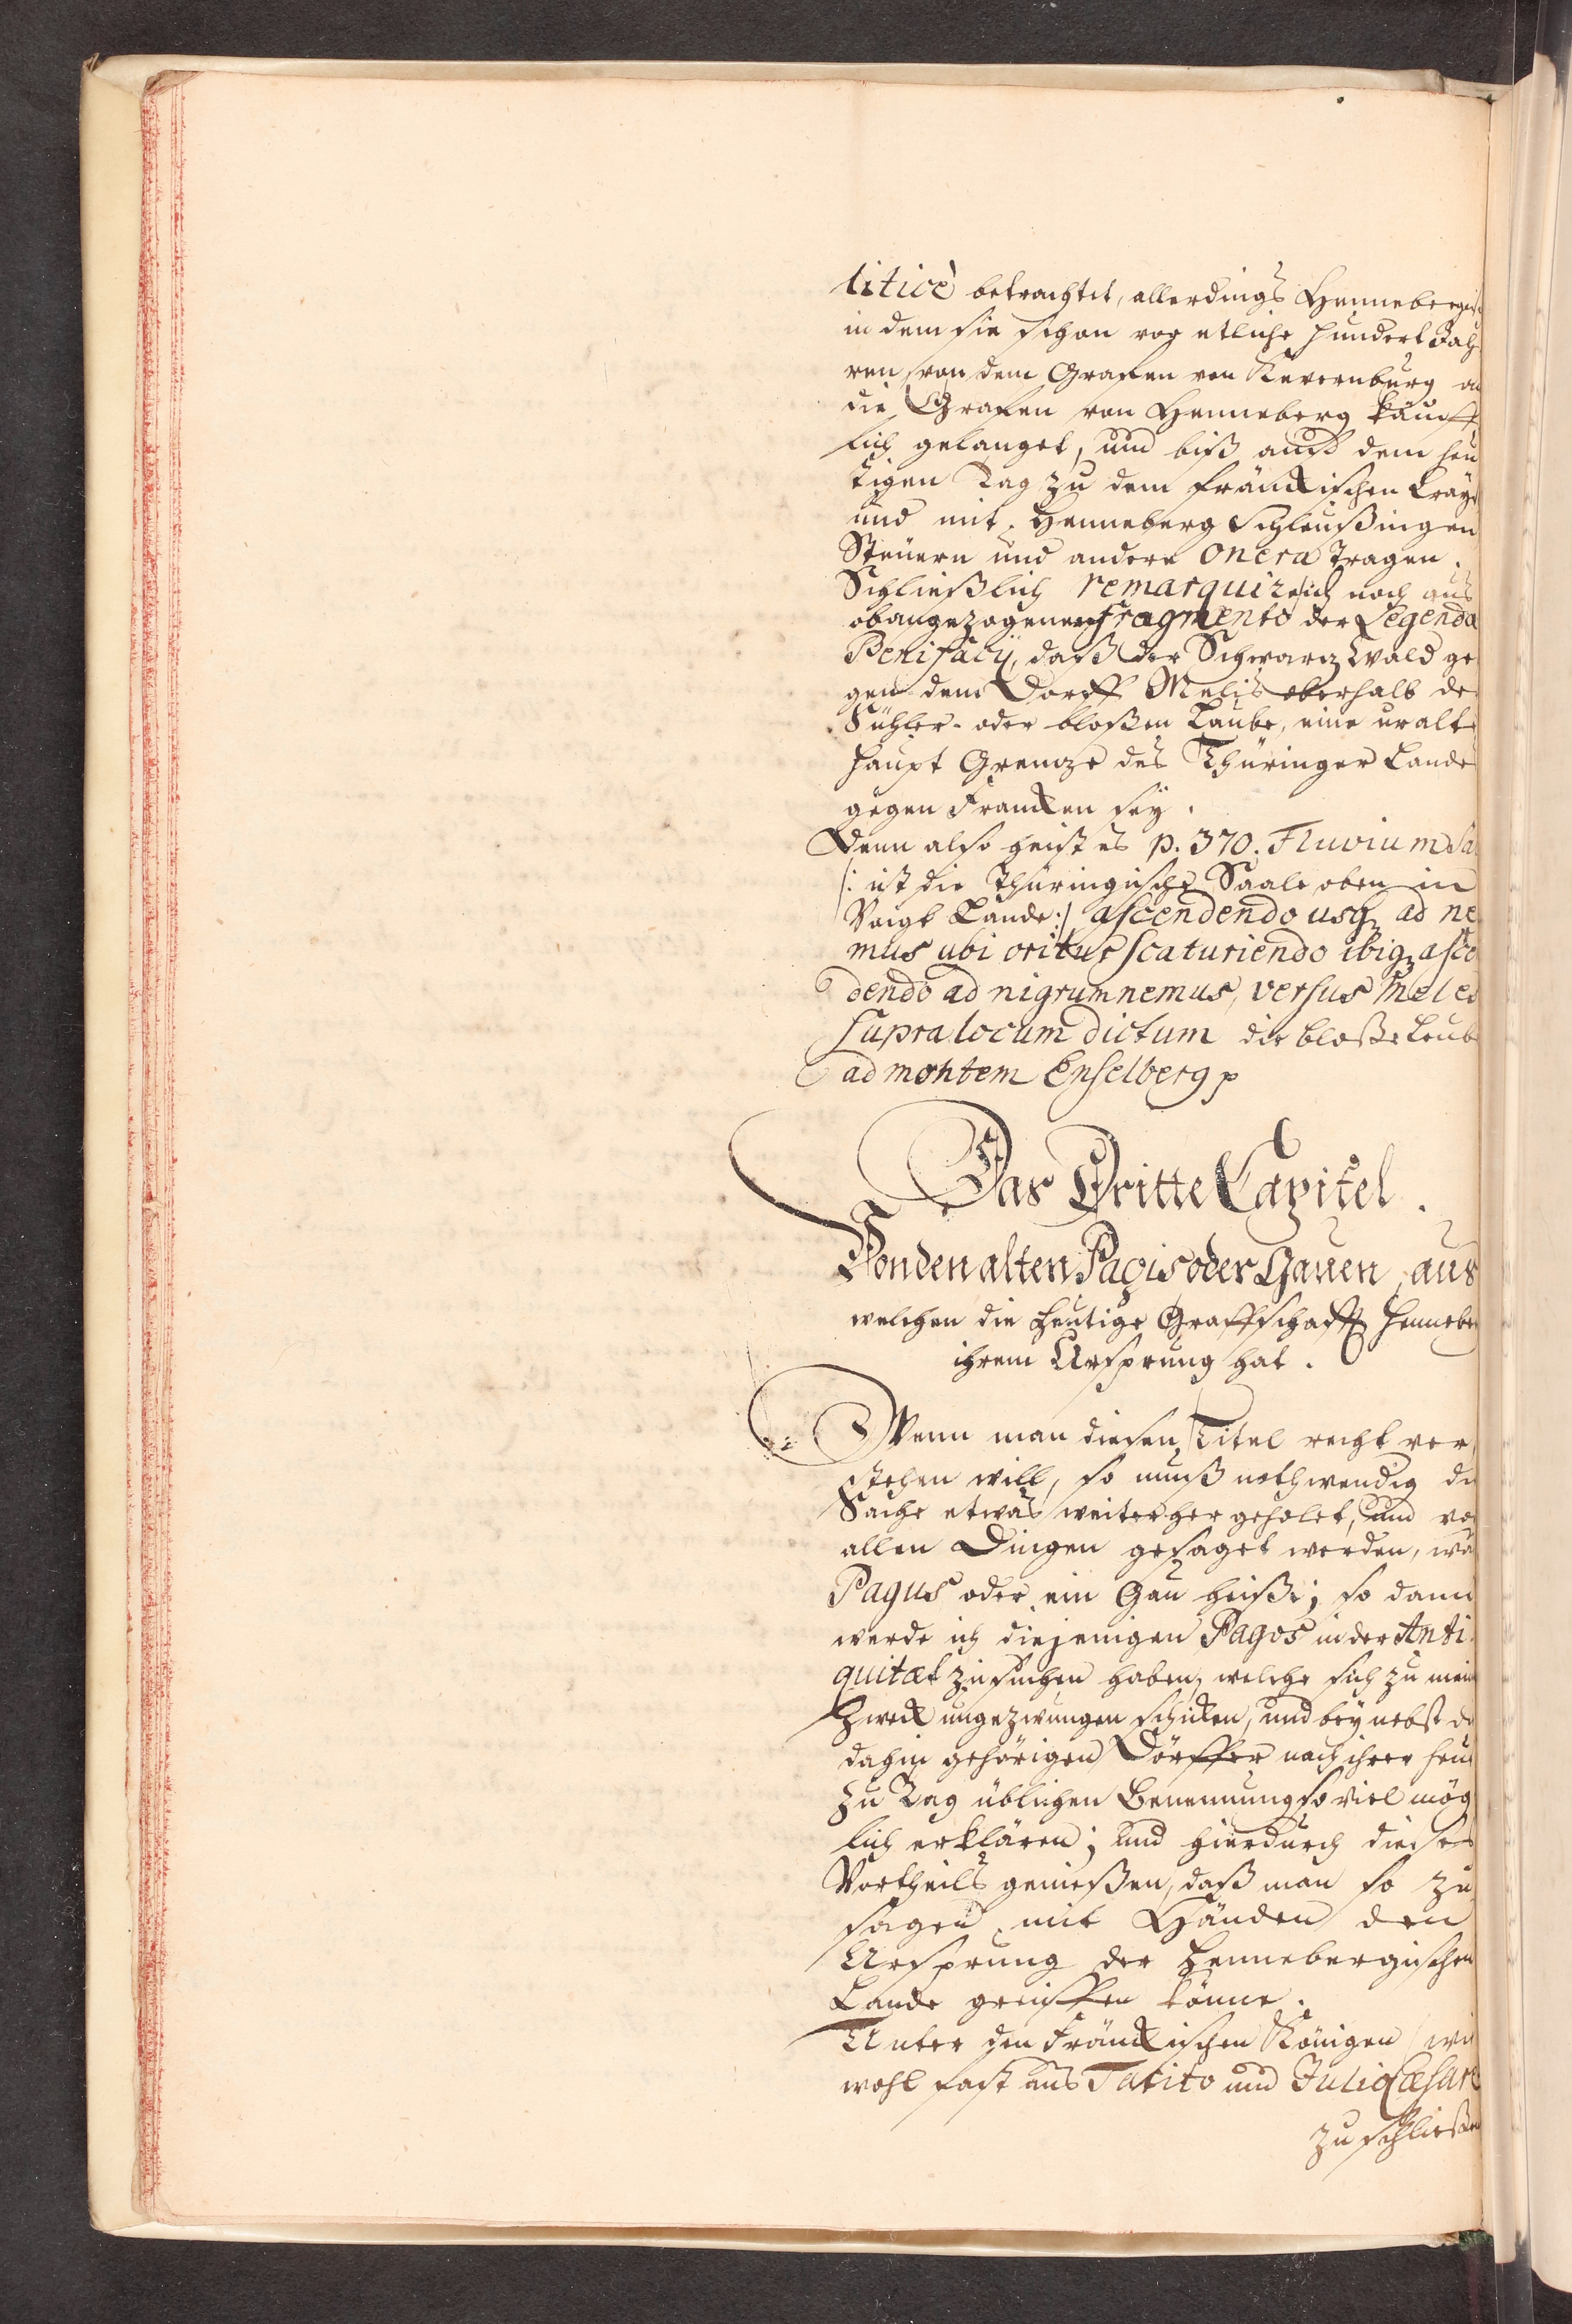 liticè betrachtet, allerdings Hennebergisc
in dem sie schon vor etliche hundert Jah
ren von dem Grafen von Kevernburg an
die Grafen von Henneberg käuff
lich gelanget, und biß auf dem heu
tigen Tag zu dem fränckischen Crayß
und mit Henneberg Schleußingen
Steuern und andere onera tragen.
Schließlich remarquire ich noch aus
obangezogenen fragmento der Legenda
Benifacij, daß der Schwarz Wald ge
gen dem Dorff Melis oberhalb de
Suhler- oder bloßen Laube, eine uralte
haupt Grentze des Thüringer Landes
gegen Francken sey.
Denn also heist es p. 370. Fluvium Sa
/: ist die Thüringische Saale oben in
Voigt Lande :/ ascendendo usq ad ne
mus ubi oritur scaturiendo ibiq asce
dendo ad nigrum nemus, versus Meles
supra locum dictum die bloße Leube
ad montem Enselberg p
Das Dritte Capitel.
Von den alten Pagis oder Gauen, aus
welchen die heutige Graffschafft Henneber
ihrem Ursprung hat.
Wenn man diesen Titel recht ver
stehen will, so muß nothwendig die
Sache etwas weiter her geholet, und vor
allen Dingen gesaget werden, wa
Pagus oder ein Gau heiße; so dann
werde ich diejenigen Pagos in der Anti
quitæt zu suchen haben, welche sich zu mein
Zweck ungezwungen schicken, und bey nebst de
dahin gehörigen Dörffer nach ihrer heut
zu Tag üblichen Benennung so viel mög
lich erklären; und hierdurch dieses
Vortheils genießen, daß man so zu
sagen mit Händen den
Ursprung der Hennebergischen
Lande greiffen könne.
Unter den Fränckischen Königen (wie
wohl fast aus Tatito und Julio Cæsare
zu schließen